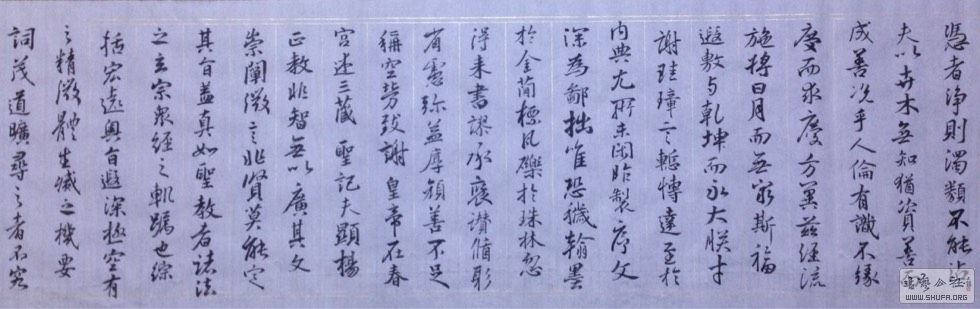 憑者淨則濁類不能沾
夫以卉木無知猶資善
成善況乎人倫有識不緣
慶而求慶方冀茲經流
施將日月而無窮斯福
遐敷與乾坤而永大朕才
謝珪璋言慙博達至於
內典尤所未閑昨製序文
深為鄙拙唯恐穢翰墨
於金簡標瓦礫於珠林忽
得來書謬承褒讚循躬
省慮彌益厚顏善不足
稱空勞致謝皇帝在春
宮述三藏聖記夫顯揚
正教非智無以廣其文
崇闡微言非賢莫能定
其旨蓋真如聖教者諸法
之玄宗眾經之軌躅也綜
括宏遠奧旨遐深極空有
之精微體生滅之機要
詞茂道曠尋之者不究
WWW.SHUFA.ORG